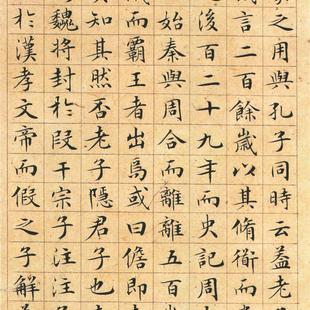 之用與孔子同時云蓋老
言二百餘歲以其脩衜而
後百二十九年而史記周
始秦與周合而離離五百
而霸王者出焉或曰儋即
知其然否老子隱君子也
魏將封於段干宗子注注
於漢孝文帝而假之子解